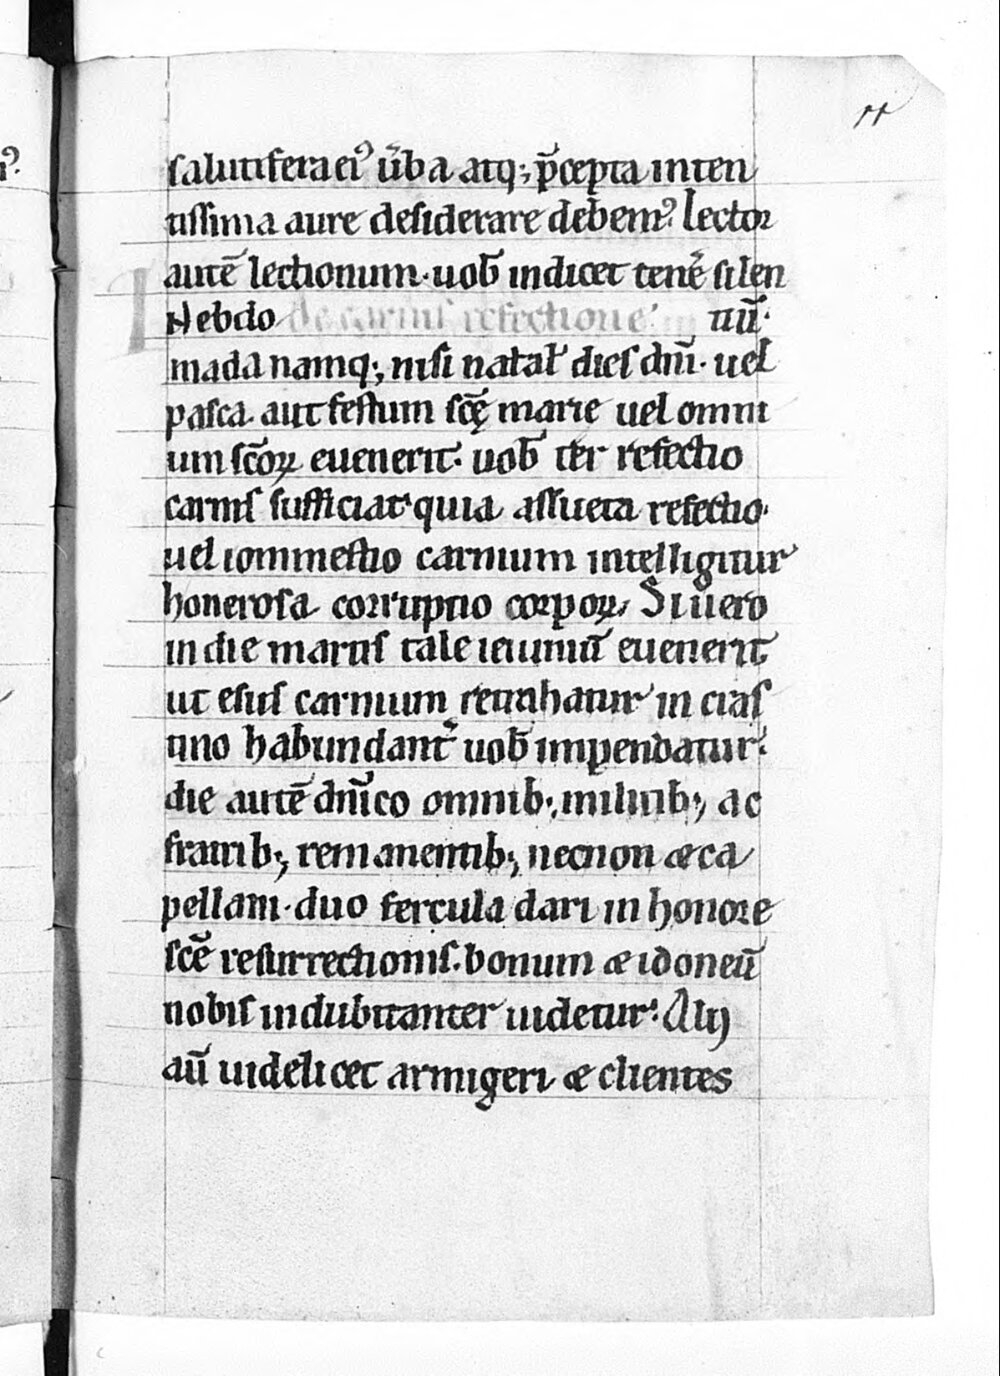 11
salutifera ei⁹ u̾ba atq; p̄cepta inten
tissima aure desiderare debem⁹ lector
autē lectionum. uob̄ indicet tenē silen
Hebdo de carnis refectione. tiū.
mada namq;, nisi natal̄ dies dn̄i. uel
pasca. aut festum scę̄ marie uel omni
um sc̄oꝝ euenerit. uob̄ ter refectio
carnis sufficiat quia assueta refectio.
uel commestio carnium intelligitur
honerosa corruptio corpoꝝ. Si uero
in die martis tale ieiuniū euenerit
ut esus carnium retrahatur in cras
tino habundant̾ uob̄ impendatur.
die autē dn̄ico omnib; militib; ac
fratrib; remanentib; necnon æ ca
pellani. duo fercula dari in honore
scē resurrectionis. bonum æ idoneū
nobis indubitanter uidetur. Alij
aū uidelicet armigeri æ clientes